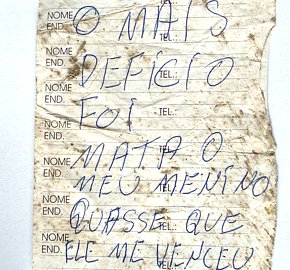 NOME O MAIS
END. TEL.:
NOME DEFICIO
END. TEL.:
NOME FOI
END. TEL.:
NOME MATA O
END. TEL.:
NOME MEU MENINO
END. TEL.:
NOME QUASSE QUE
END. TEL.:
NOME ELE ME VENCEU
END. TEL.: